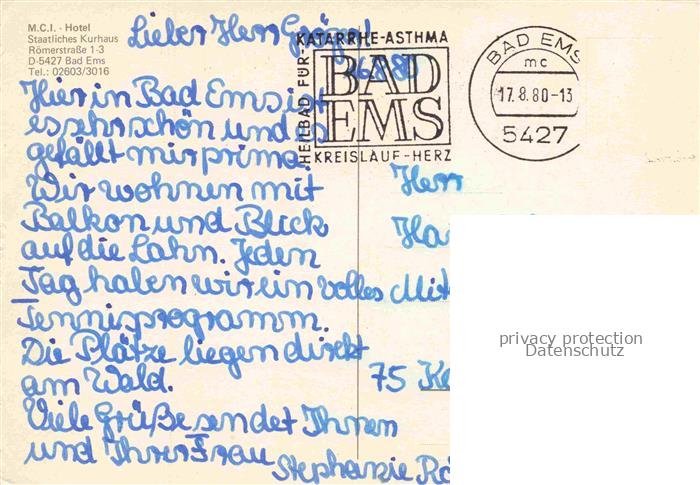 M.C.I. - Hotel
Staatliches Kurhaus
Römerstraße 1-3
D-5427 Bad Ems
Tel.: 02603/3016
Lieber Herr
KATARRHE-ASTHMA
HEILBAD FÜR
BAD
EMS
KREISLAUF-HERZ
BAD EMS
mc
17.8.80-13
5427
Hier in Bad Ems ist
es sehr schön und es
gefällt mir prima.
Wir wohnen mit
Balkon und Blick
auf die Lahn. Jeden
Tag haben wir ein volles
Tennisprogramm.
Die Plätze liegen direkt
am Wald.
Viele Grüße sendet Ihnen
und Ihrer Frau
Stephanie
Herr
75
privacy protection
Datenschutz